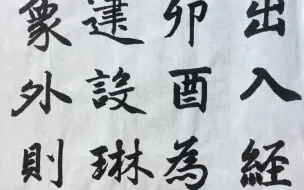 出入經
卯酉為
建設琳
象外則